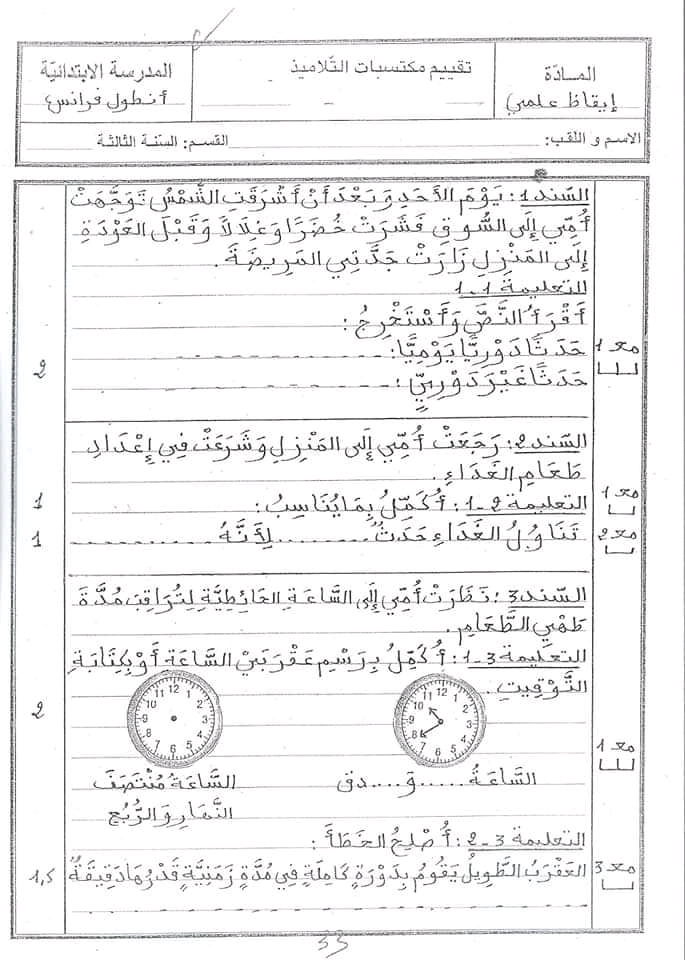 المدرسة الابتدائيّة
أنطول فرانس
تقييم مكتسبات التّلاميذ
-
المــادّة
إيقاظ علمي
الاسم و اللقب:
القسم: السّنة الثّالثة
السّند 1: يَوْمَ الأَحَدِ وَبَعْدَ أَنْ أَشْرَقَتِ الشَّمْسُ تَوَجَّهَتْ
أُمِّي إِلَى السُّوقِ فَشَرَتْ خُضَرًا وَغِلَالًا وَقَبْلَ العَوْدَةِ
إِلَى المَنْزِلِ زَارَتْ جَدَّتِي المَرِيضَةَ.
التعليمة 1-1
أَقْرَأُ النَّصَّ وَأَسْتَخْرِجُ:
حَدَثًا دَوْرِيًّا يَوْمِيًّا: ..............
حَدَثًا غَيْرَ دَوْرِيٍّ: ..............
مع 1
2
السّند 2: رَجَعَتْ أُمِّي إِلَى المَنْزِلِ وَشَرَعَتْ فِي إِعْدَادِ
طَعَامِ الغَدَاءِ.
التعليمة 2-1: أُكَمِّلُ بِمَا يُنَاسِبُ:
مع 1
1
تَنَاوُلُ الغَدَاءِ حَدَثٌ .......... لِأَنَّهُ ..........
مع 2
1
السّند 3: نَظَرَتْ أُمِّي إِلَى السَّاعَةِ الحَائِطِيَّةِ لِتُرَاقِبَ مُدَّةَ
طَهْيِ الطَّعَامِ.
التعليمة 3-1: أُكَمِّلُ بِرَسْمِ عَقْرَبَيْ السَّاعَةِ أَوْ بِكِتَابَةِ
التَّوْقِيتِ.
12 1 2 3 4 5 6 7 8 9 10 11
12 1 2 3 4 5 6 7 8 9 10 11
مع 1
2
السَّاعَةُ ...... وَ .... دق
السَّاعَةُ مُنْتَصَفَ
النَّهَارِ وَالرُّبُع
التعليمة 3-2: أُصْلِحُ الخَطَأَ:
العَقْرَبُ الطَّوِيلُ يَقُومُ بِدَوْرَةٍ كَامِلَةٍ فِي مُدَّةٍ زَمَنِيَّةٍ قَدْرُهَا دَقِيقَةٌ
..............
مع 3
1,5
33